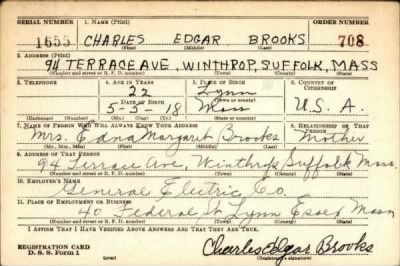 SERIAL NUMBER 1. NAME (Print) ORDER NUMBER
1655 CHARLES EDGAR BROOKS 708
(First) (Middle) (Last)
2. ADDRESS (Print)
94 TERRACE AVE, WINTHROP, SUFFOLK, MASS
(Number and street or R. F. D. number) (Town) (County) (State)
3. TELEPHONE 4. AGE IN YEARS 5. PLACE OF BIRTH 6. COUNTRY OF CITIZENSHIP
22 Lynn
DATE OF BIRTH (Town or county)
5-5-18 Mass U.S.A.
(Exchange) (Number) (Mo.) (Day) (Yr.) (State or country)
7. NAME OF PERSON WHO WILL ALWAYS KNOW YOUR ADDRESS 8. RELATIONSHIP OF THAT PERSON
Mrs. Edna Margaret Brooks Mother
(Mr., Mrs., Miss) (First) (Middle) (Last)
9. ADDRESS OF THAT PERSON
94 Terrace Ave, Winthrop Suffolk Mass.
(Number and street or R. F. D. number) (Town) (County) (State)
10. EMPLOYER'S NAME
General Electric Co.
11. PLACE OF EMPLOYMENT OR BUSINESS
40 Federal St Lynn Essex Mass
(Number and street or R. F. D. number) (Town) (County) (State)
I AFFIRM THAT I HAVE VERIFIED ABOVE ANSWERS AND THAT THEY ARE TRUE.
REGISTRATION CARD
D. S. S. Form 1 (over) Charles Edgar Brooks
(Registrant's signature)